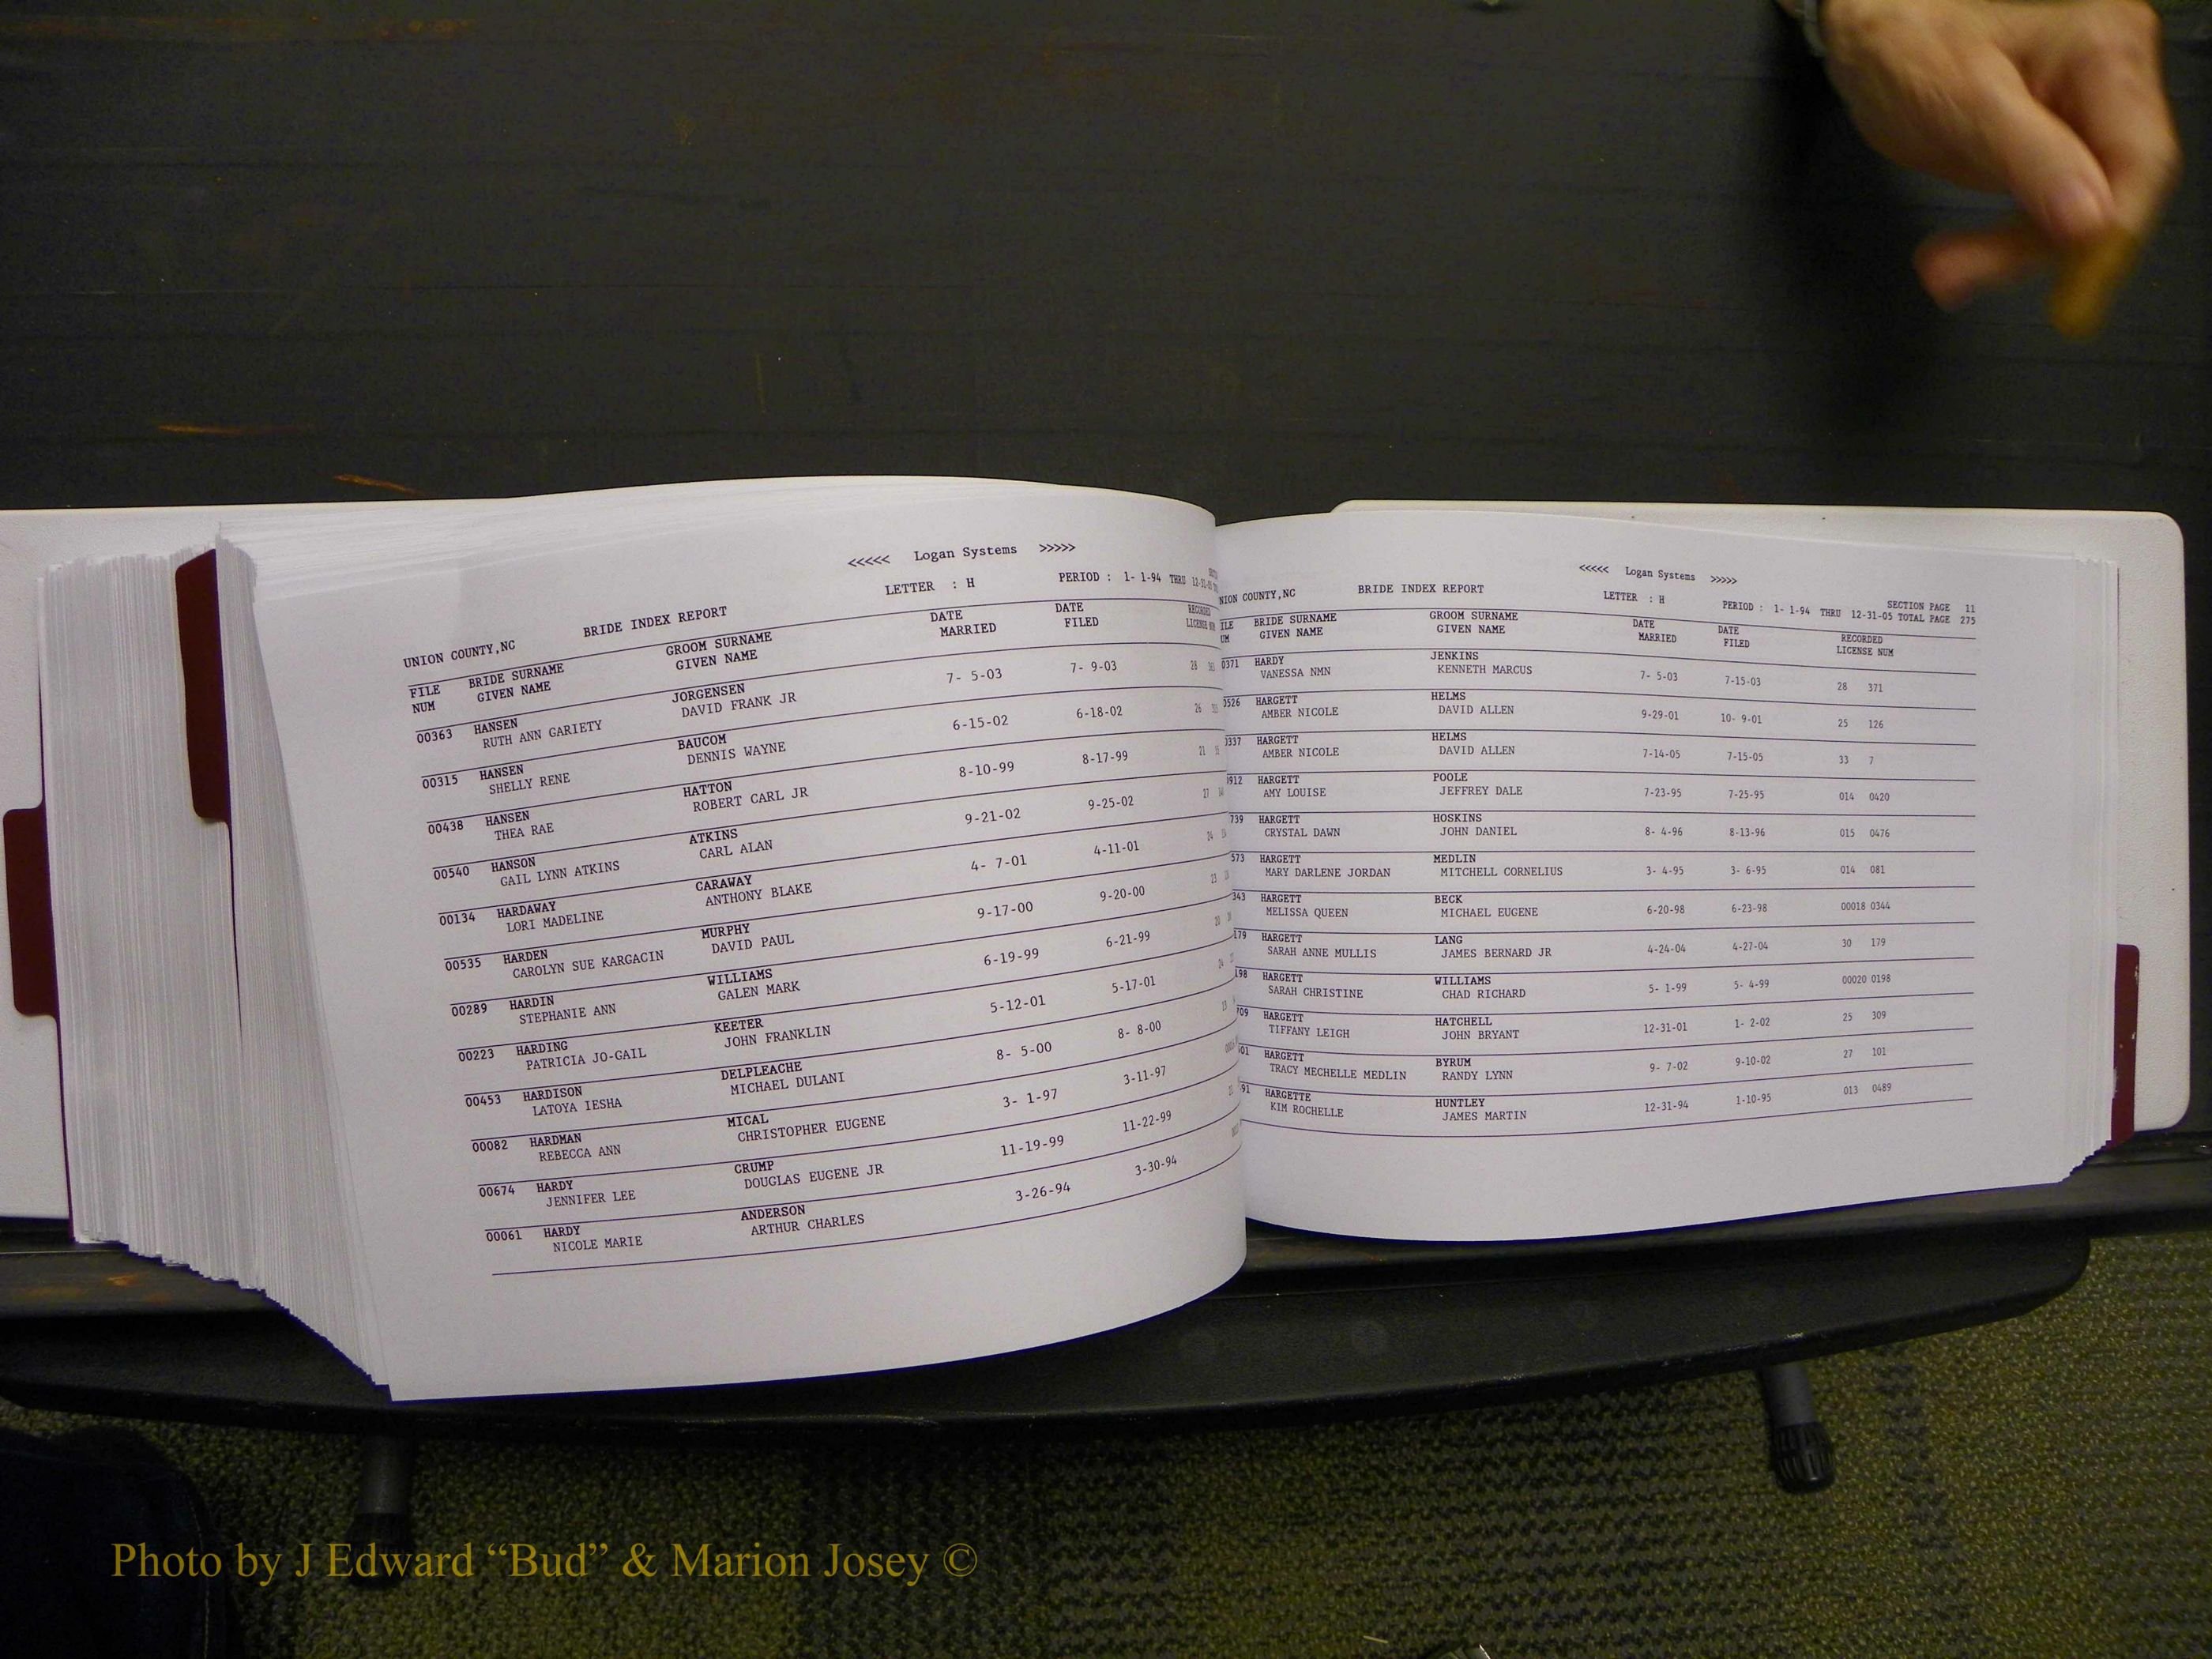 <<<<< Logan Systems >>>>>
LETTER : H PERIOD : 1- 1-94 THRU
UNION COUNTY,NC BRIDE INDEX REPORT
FILE BRIDE SURNAME GROOM SURNAME DATE DATE RECORDED
NUM GIVEN NAME GIVEN NAME MARRIED FILED LICENSE
00363 HANSEN JORGENSEN 7- 5-03 7- 9-03 28
RUTH ANN GARIETY DAVID FRANK JR
00315 HANSEN BAUCOM 6-15-02 6-18-02 26
SHELLY RENE DENNIS WAYNE
00438 HANSEN HATTON 8-10-99 8-17-99 21
THEA RAE ROBERT CARL JR
00540 HANSON ATKINS 9-21-02 9-25-02 27
GAIL LYNN ATKINS CARL ALAN
00134 HARDAWAY CARAWAY 4- 7-01 4-11-01 24
LORI MADELINE ANTHONY BLAKE
00535 HARDEN MURPHY 9-17-00 9-20-00 23
CAROLYN SUE KARGACIN DAVID PAUL
00289 HARDIN WILLIAMS 6-19-99 6-21-99 20
STEPHANIE ANN GALEN MARK
00223 HARDING KEETER 5-12-01 5-17-01 24
PATRICIA JO-GAIL JOHN FRANKLIN
00453 HARDISON DELPLEACHE 8- 5-00 8- 8-00
LATOYA IESHA MICHAEL DULANI
00082 HARDMAN MICAL 3- 1-97 3-11-97
REBECCA ANN CHRISTOPHER EUGENE
00674 HARDY CRUMP 11-19-99 11-22-99
JENNIFER LEE DOUGLAS EUGENE JR
00061 HARDY ANDERSON 3-26-94 3-30-94
NICOLE MARIE ARTHUR CHARLES
<<<<< Logan Systems >>>>>
NION COUNTY,NC BRIDE INDEX REPORT LETTER : H SECTION PAGE 11
PERIOD : 1- 1-94 THRU 12-31-05 TOTAL PAGE 275
ILE BRIDE SURNAME GROOM SURNAME DATE DATE RECORDED
UM GIVEN NAME GIVEN NAME MARRIED FILED LICENSE NUM
0371 HARDY JENKINS 7- 5-03 7-15-03 28 371
VANESSA NMN KENNETH MARCUS
0526 HARGETT HELMS 9-29-01 10- 9-01 25 126
AMBER NICOLE DAVID ALLEN
0337 HARGETT HELMS 7-14-05 7-15-05 33 7
AMBER NICOLE DAVID ALLEN
912 HARGETT POOLE 7-23-95 7-25-95 014 0420
AMY LOUISE JEFFREY DALE
739 HARGETT HOSKINS 8- 4-96 8-13-96 015 0476
CRYSTAL DAWN JOHN DANIEL
573 HARGETT MEDLIN 3- 4-95 3- 6-95 014 081
MARY DARLENE JORDAN MITCHELL CORNELIUS
343 HARGETT BECK 6-20-98 6-23-98 00018 0344
MELISSA QUEEN MICHAEL EUGENE
179 HARGETT LANG 4-24-04 4-27-04 30 179
SARAH ANNE MULLIS JAMES BERNARD JR
198 HARGETT WILLIAMS 5- 1-99 5- 4-99 00020 0198
SARAH CHRISTINE CHAD RICHARD
709 HARGETT HATCHELL 12-31-01 1- 2-02 25 309
TIFFANY LEIGH JOHN BRYANT
01 HARGETT BYRUM 9- 7-02 9-10-02 27 101
TRACY MECHELLE MEDLIN RANDY LYNN
91 HARGETTE HUNTLEY 12-31-94 1-10-95 013 0489
KIM ROCHELLE JAMES MARTIN
Photo by J Edward “Bud” & Marion Josey ©